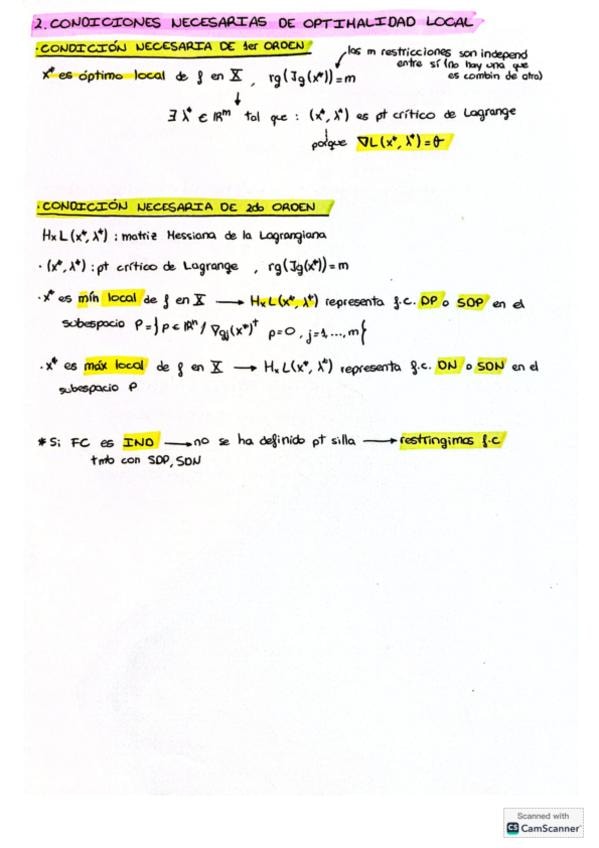 2. CONDICIONES NECESARIAS DE OPTIMALIDAD LOCAL
· CONDICIÓN NECESARIA DE 1er ORDEN
los m restricciones son independ
entre sí (no hay una que
es combin de otra)
x* es óptimo local de f en X , rg(Jg(x*))=m
∃ λ* ∈ ℝᵐ tal que : (x*, λ*) es pt crítico de Lagrange
porque ∇L(x*, λ*)=θ
· CONDICIÓN NECESARIA DE 2do ORDEN
HxL(x*, λ*) : matriz Hessiana de la Lagrangiana
· (x*, λ*) : pt crítico de Lagrange , rg(Jg(x*))=m
· x* es mín local de f en X → HxL(x*, λ*) representa f.c. DP o SDP en el
subespacio P={p ∈ ℝⁿ / ∇gj(x*)ᵗ p=0, j=1,...,m}
· x* es máx local de f en X → HxL(x*, λ*) representa f.c. DN o SDN en el
subespacio P
* Si FC es IND → no se ha definido pt silla → restringimos f.c
tmb con SDP, SDN
Scanned with
CS CamScanner